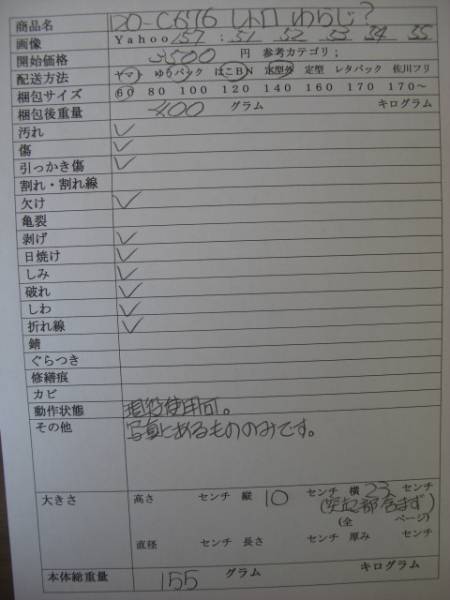 商品名 DO-C676 レトロ わらじ?
画像 Yahoo 157 : 51 52 53 54 55
開始価格 3500 円 参考カテゴリ;
配送方法 ヤマト ゆうパック はこBN 定型外 定型 レタパック 佐川フリ
梱包サイズ 60 80 100 120 140 160 170 170〜
梱包後重量 400 グラム キログラム
汚れ ✓
傷 ✓
引っかき傷 ✓
割れ・割れ線
欠け ✓
亀裂
剥げ ✓
日焼け ✓
しみ ✓
破れ ✓
しわ ✓
折れ線 ✓
錆
ぐらつき
修繕痕
カビ
動作状態 現役使用可。
その他 写真にあるもののみです。
大きさ 高さ センチ 縦 10 センチ 横 23 センチ
(突起部含まず)
(全 ページ)
直径 センチ 長さ センチ 厚み センチ
本体総重量 155 グラム キログラム